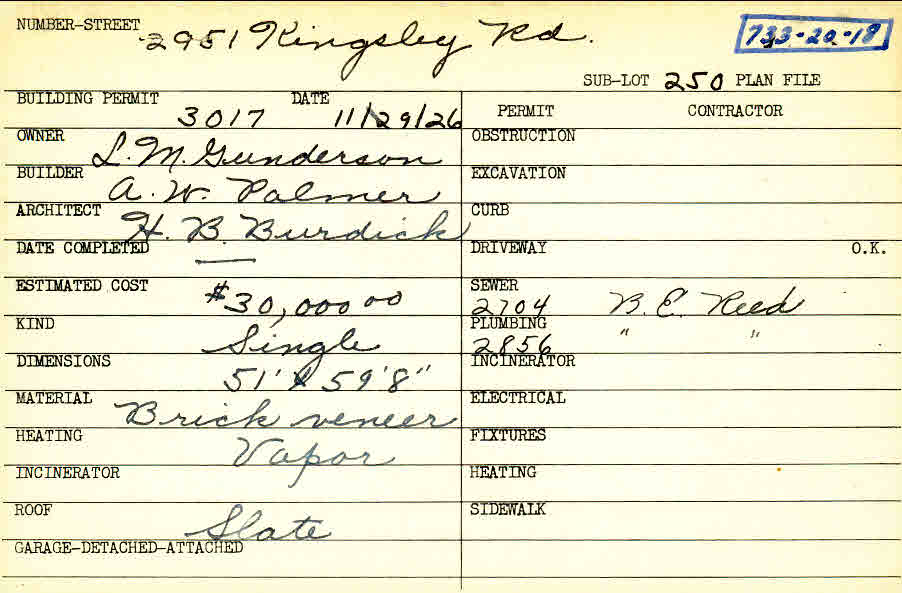 NUMBER-STREET 2951 Kingsley Rd. 733-20-18
SUB-LOT 250 PLAN FILE
BUILDING PERMIT 3017 DATE 11/29/26 PERMIT CONTRACTOR
OWNER L. M. Gunderson OBSTRUCTION
BUILDER A. W. Palmer EXCAVATION
ARCHITECT H. B. Burdick CURB
DATE COMPLETED — DRIVEWAY O.K.
ESTIMATED COST $30,000 00 SEWER 2704 B. E. Reed
KIND Single PLUMBING 2856 " "
DIMENSIONS 51' x 59'8" INCINERATOR
MATERIAL Brick veneer ELECTRICAL
HEATING Vapor FIXTURES
INCINERATOR HEATING
ROOF Slate SIDEWALK
GARAGE-DETACHED-ATTACHED